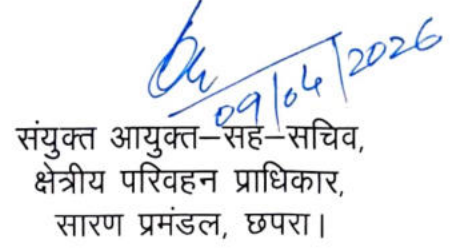 09/04/2026
संयुक्त आयुक्त–सह–सचिव,
क्षेत्रीय परिवहन प्राधिकार,
सारण प्रमंडल, छपरा।